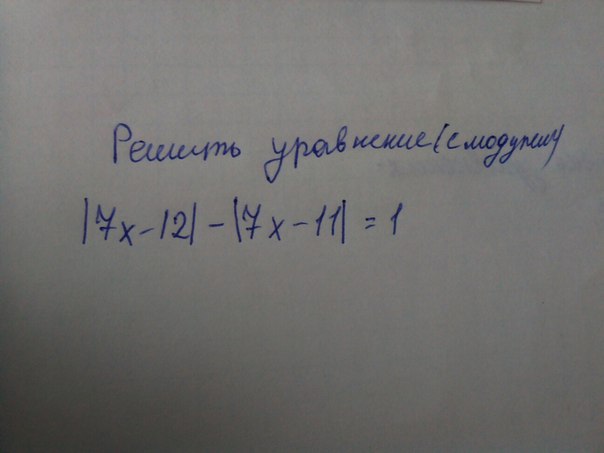 Решить уравнение (с модулем)
|7x-12| - |7x-11| = 1